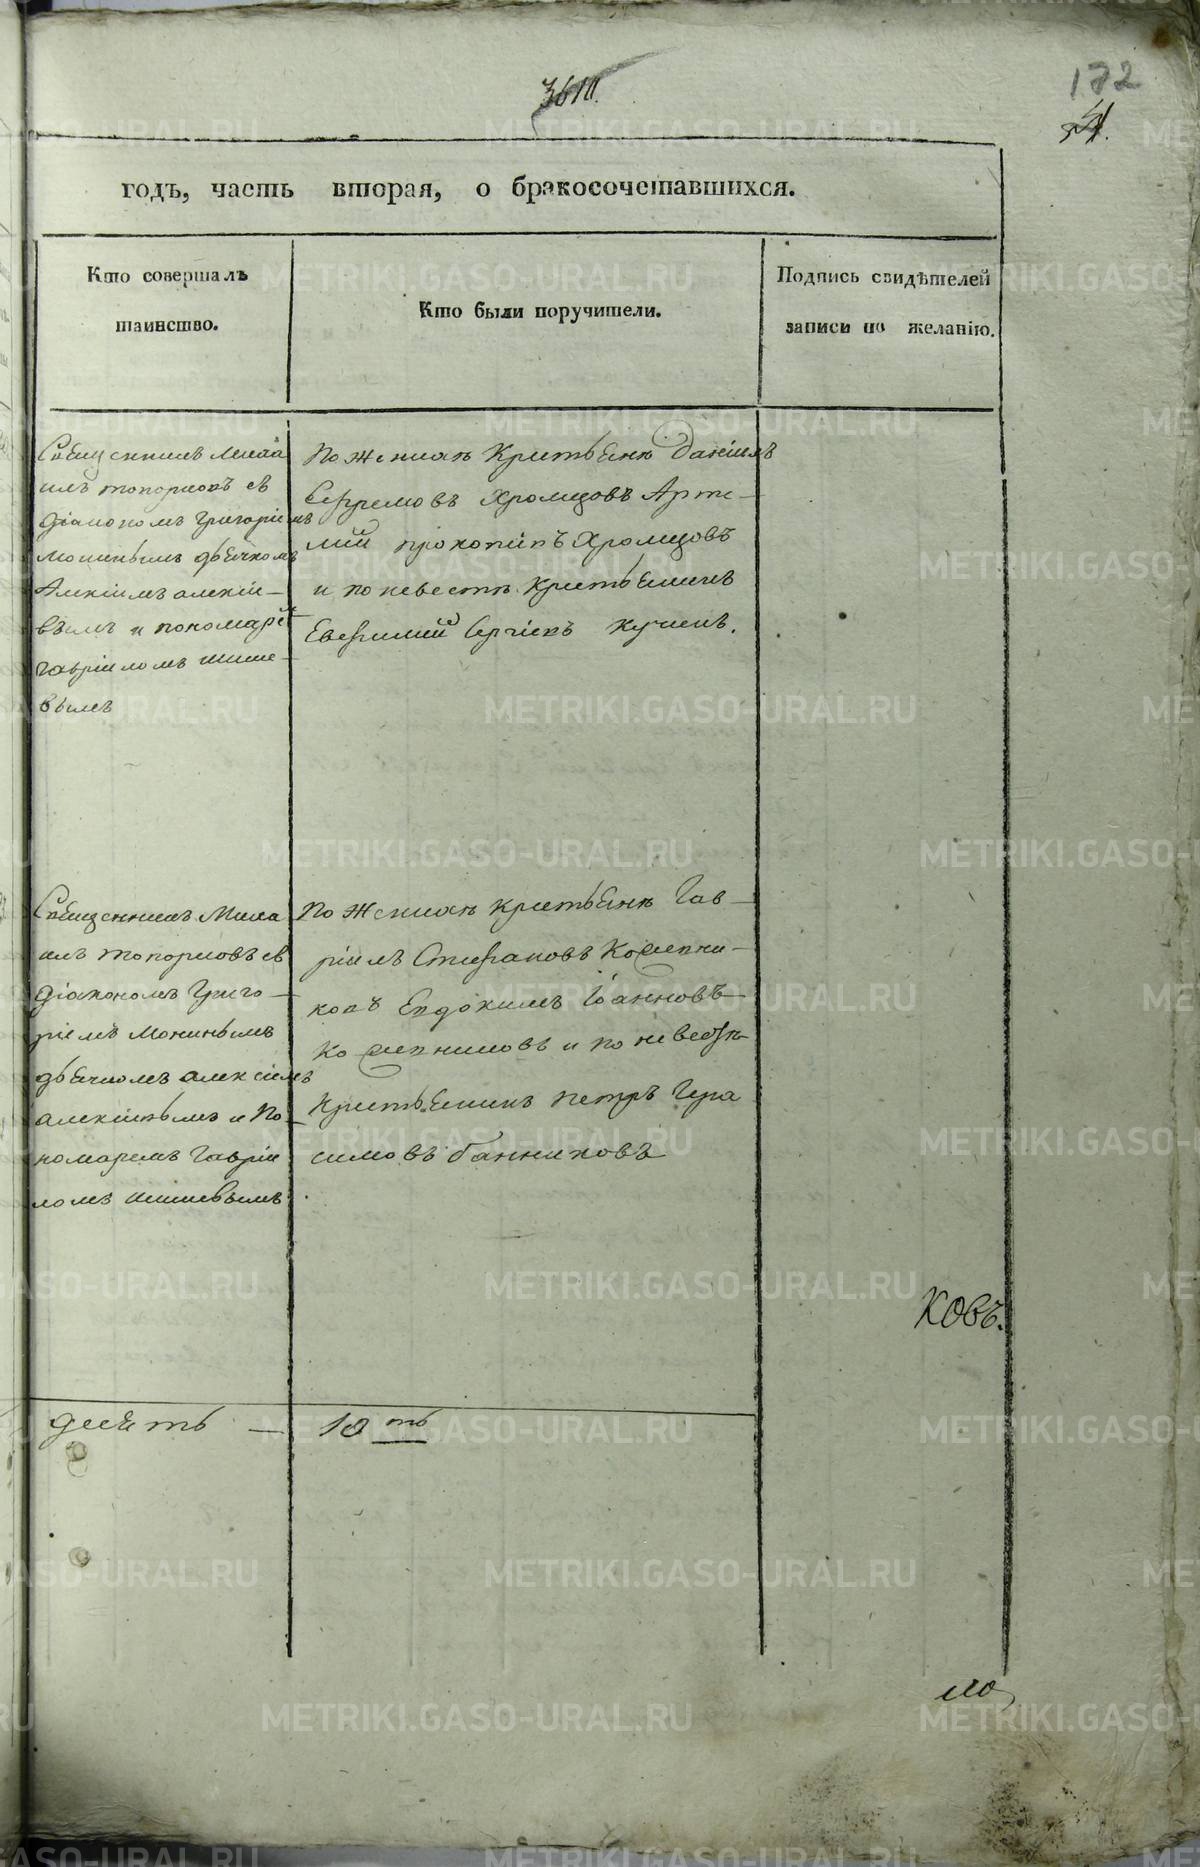 172
годъ, часть вторая, о бракосочетавшихся.
Кто совершалъ
таинство.
Кто были поручители.
Подпись свидѣтелей
записи по желанію.
Священникъ Миха
илъ Топорковъ съ
Діакономъ Григоріемъ
Мониным дьячкомъ
Алексіемъ Алексіе-
вымъ и пономаремъ
Гавріиломъ
вымъ
По женихѣ Крестьяне Даніилъ
Ефремовъ Хромцовъ Арте-
мій Прокопіевъ Хромцовъ
и по невестѣ Крестьянинъ
Евфимий Сергіевъ
Священникъ Миха
илъ Топорковъ съ
Діакономъ Григо-
ріемъ Монинымъ
дьячкомъ Алексіемъ
Алексіевымъ и По-
номаремъ Гавріи
ломъ
По женихѣ крестьяне Гав-
ріилъ Стефановъ
ковъ Евдокимъ Іоанновъ
и по невестѣ
Крестьянинъ Петръ Гера
симовъ Банниковъ
ковъ.
десять — 10ть
METRIKI.GASO-URAL.RU